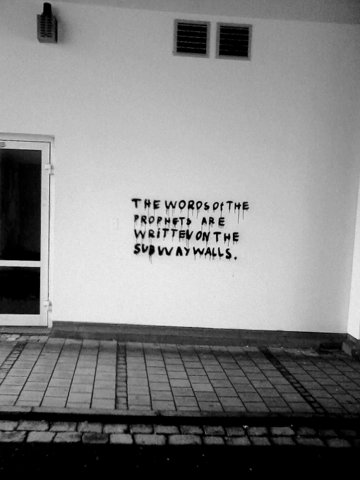 THE WORDS Of THE
PROPHETS ARE
WRiTTEN ON THE
SUBWAY WALLS.